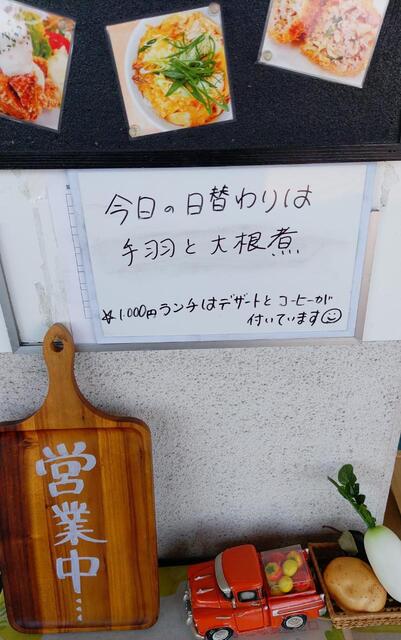 今日の日替わりは
手羽と大根煮
☆1.000円ランチはデザートとコーヒーが
付いています☺
営業中…